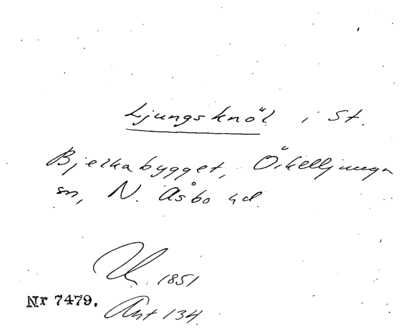 Ljungsknöl i St.
Bjerkabygget, Örkelljunga
sn, N. Åsbo hd.
U. 1851
Nr 7479.
Ant 134